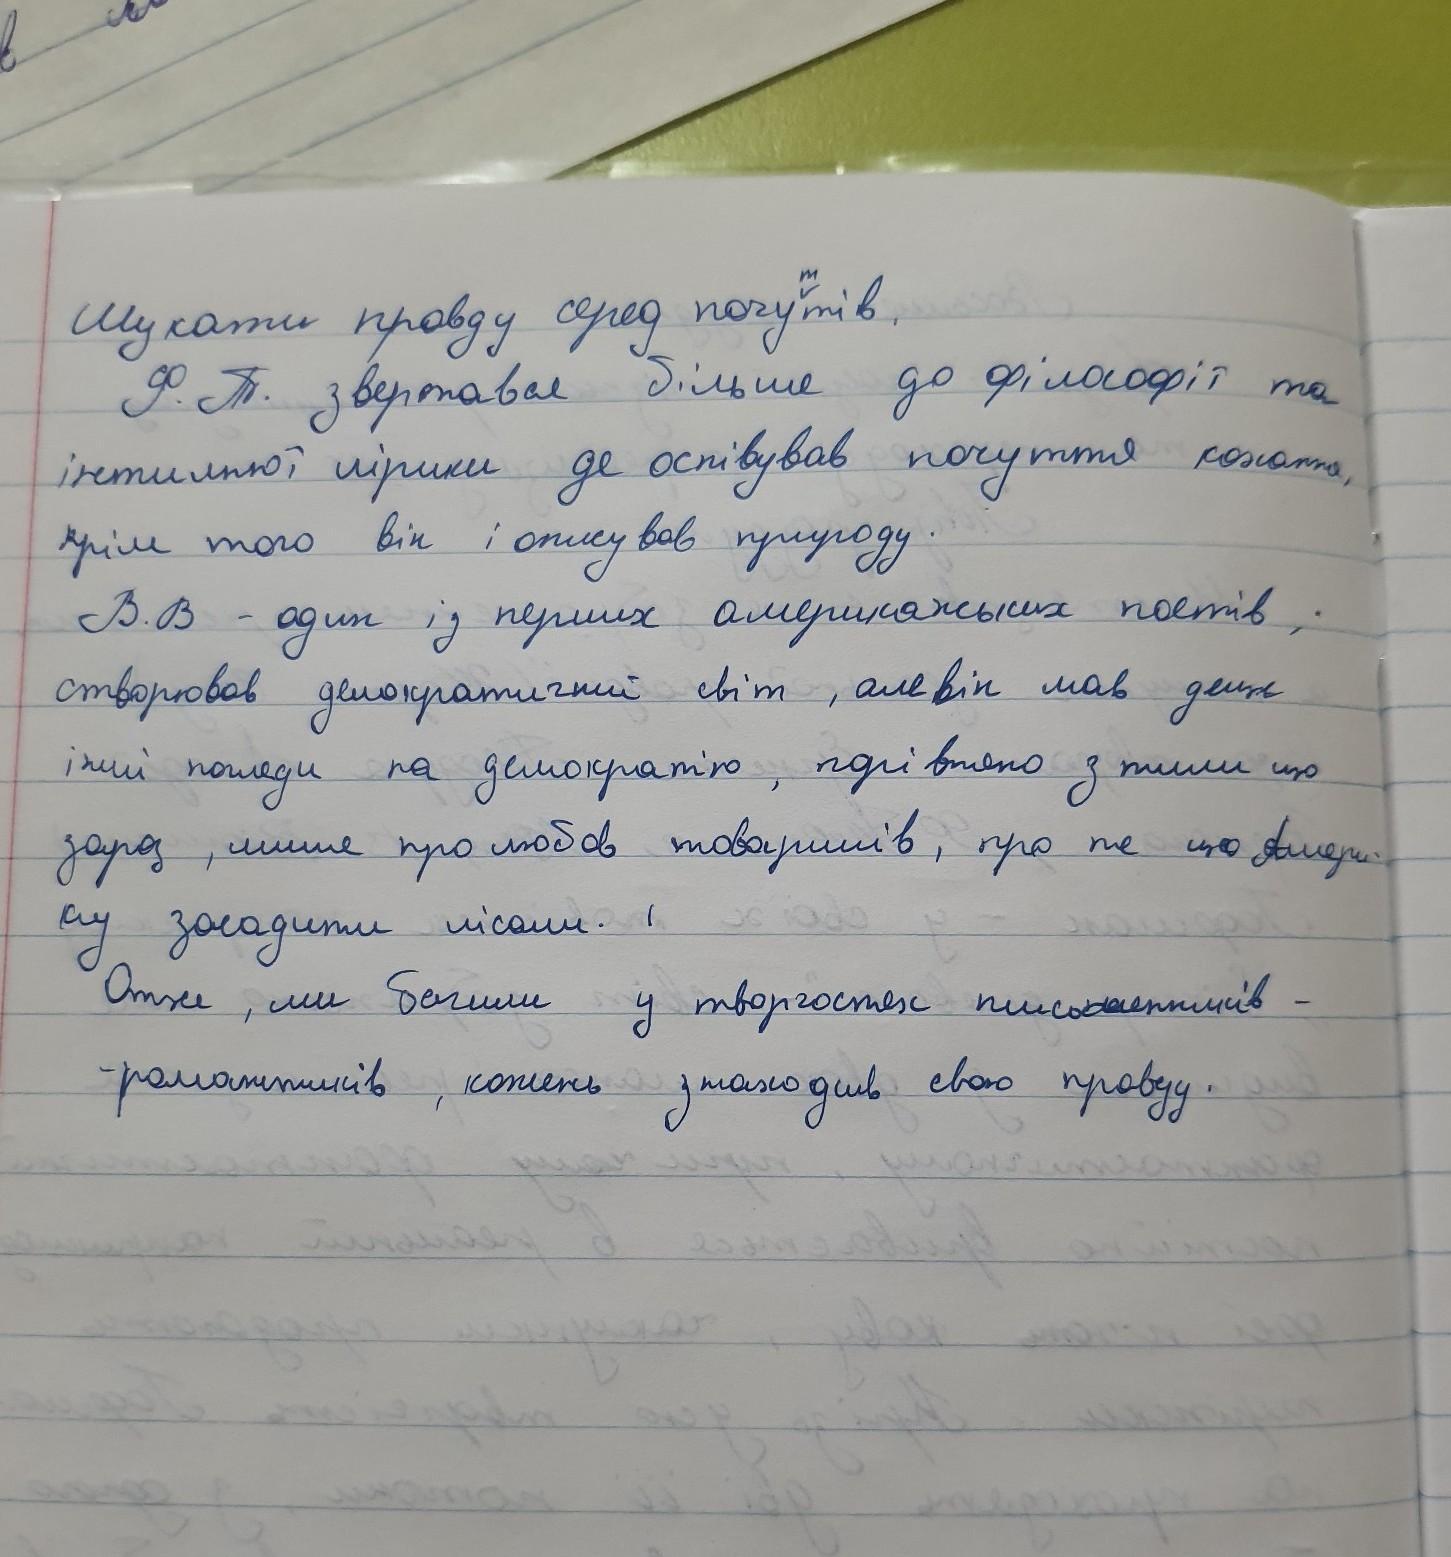 Шукати правду серед почуттів.
Ф. Т. звертався більше до філософії та
інтимної лірики де оспівував почуття кохання,
крім того він і описував природу.
В. В - один із перших американських поетів,
створював демократичний світ, але він мав дещо
інші погляди на демократію, порівняно з тими що
зараз, лише про любов товаришів, про те що Амери-
ку засадити лісами.
Отже, ми бачили у творчостях письменників -
-романтиків, кожень знаходив свою правду.